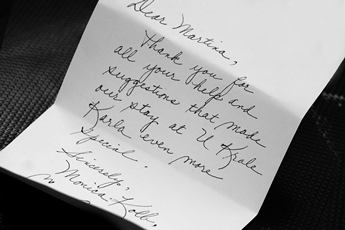 Dear Martina,
Thank you for
all your help and
suggestions that made
our stay at U Krále
Karla even more
special.
Sincerely,
Monica Kolb.